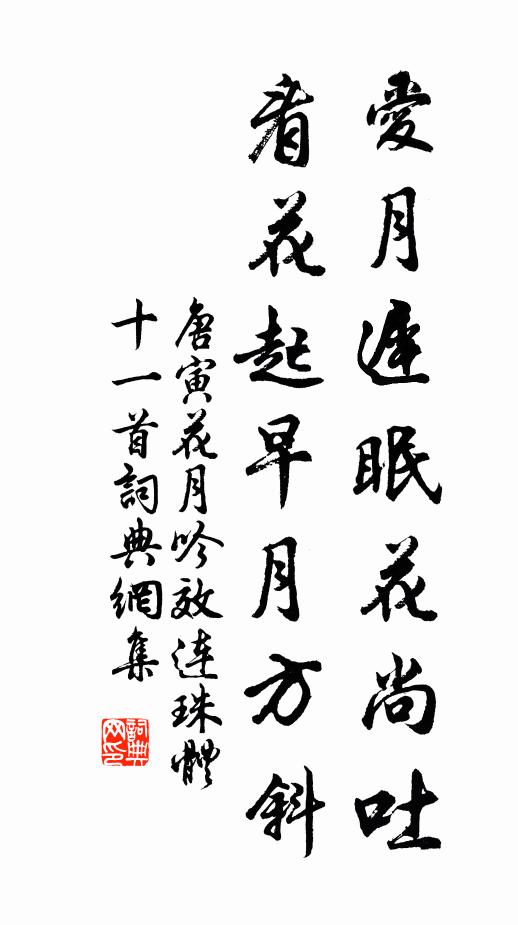 愛月遲眠花尚吐
看花起早月方斜
唐寅花月吟效连珠體
十一首詞典網集
詞典网印